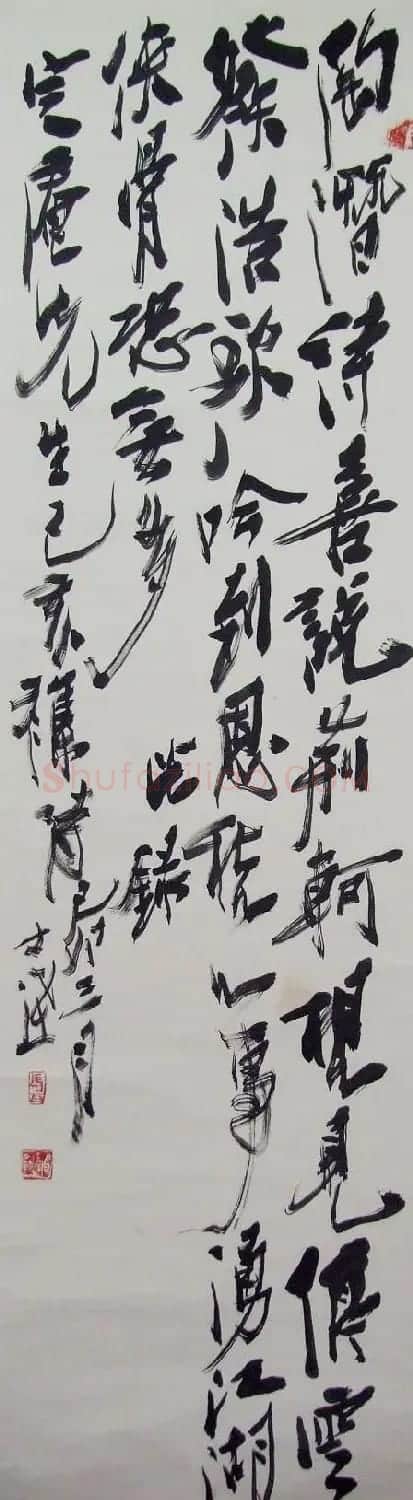 陶潛詩喜說荊軻想見停雲
發浩歌吟到恩仇心事湧江湖
俠骨恐無多
錄
定庵先生己亥雜詩
己卯三月
Shufaziliao.COM